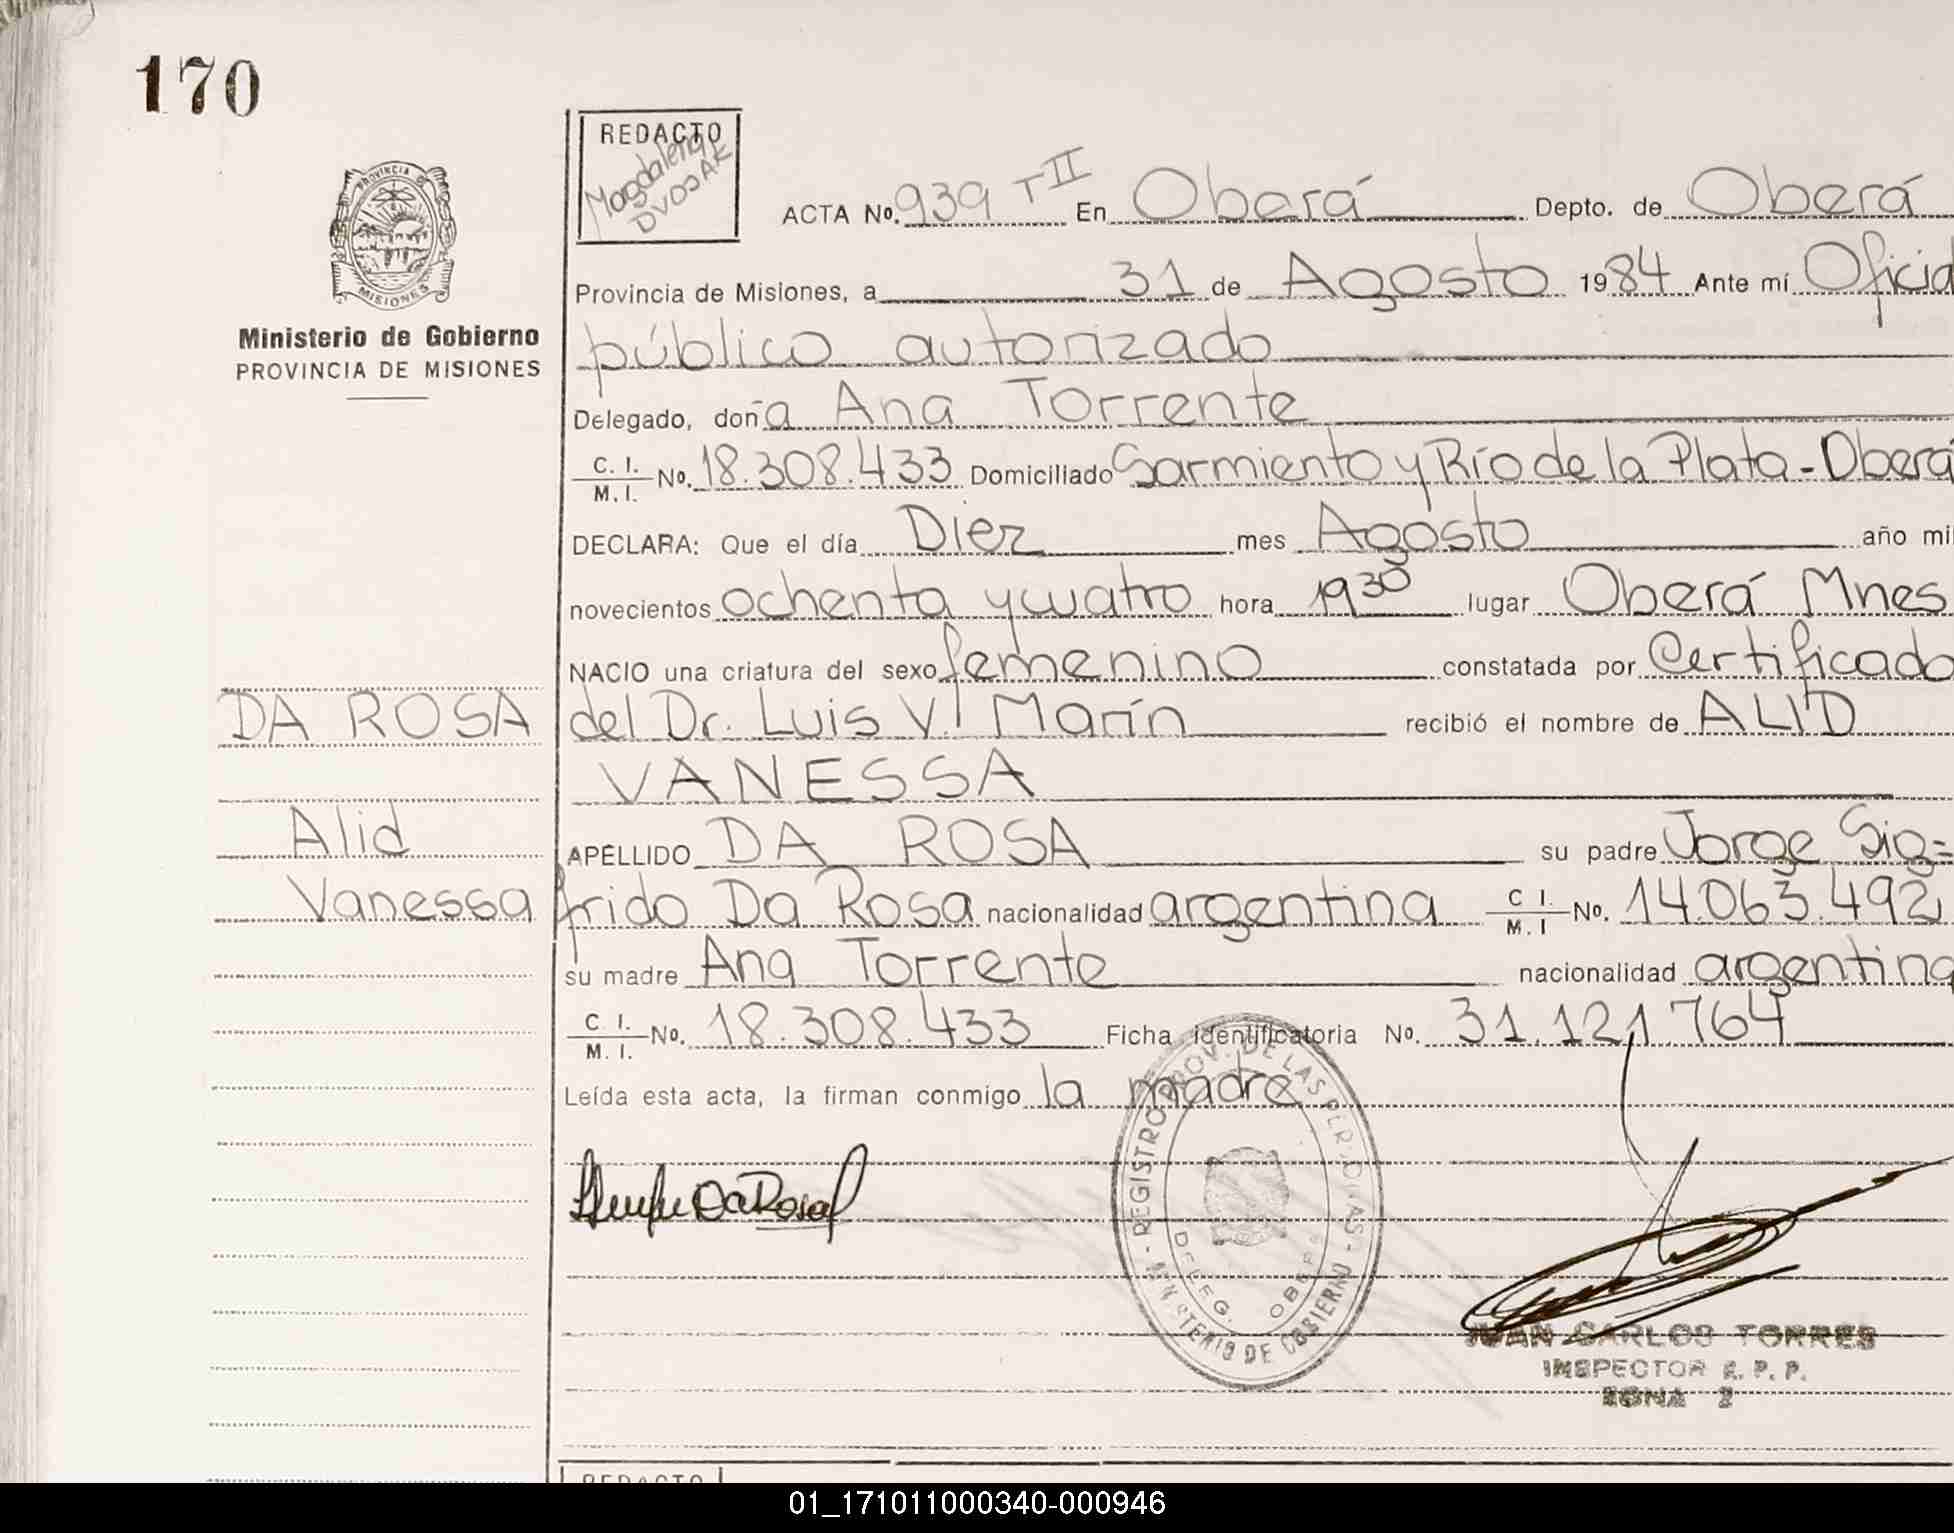 170
REDACTO
Magdalena
DVOJAK
PROVINCIA DE
MISIONES
Ministerio de Gobierno
PROVINCIA DE MISIONES
ACTA No. 939 T II En Oberá Depto. de Oberá
Provincia de Misiones, a 31 de Agosto 1984 Ante mí Oficial
público autorizado
Delegado, doña Ana Torrente
C. I. / M. I. No. 18.308.433 Domiciliado Sarmiento y Río de la Plata - Oberá
DECLARA: Que el día Diez mes Agosto año mil
novecientos ochenta y cuatro hora 19 30 lugar Oberá Mnes
NACIO una criatura del sexo femenino constatada por Certificado
DA ROSA del Dr. Luis V. Marín recibió el nombre de ALID
VANESSA
Alid APELLIDO DA ROSA su padre Jorge Sig=
Vanessa frido Da Rosa nacionalidad argentina C I. / M. I No. 14.063.492
su madre Ana Torrente nacionalidad argentina
C I. / M. I. No. 18.308.433 Ficha identificatoria No. 31.121.764
Leída esta acta, la firman conmigo la madre
Da Rosa
- REGISTRO PROV. DE LAS PERSONAS -
MINISTERIO DE GOBIERNO
DELEG. OBERA
JUAN CARLOS TORRES
INSPECTOR R. P. P.
ZONA 2
REDACTO
01_171011000340-000946